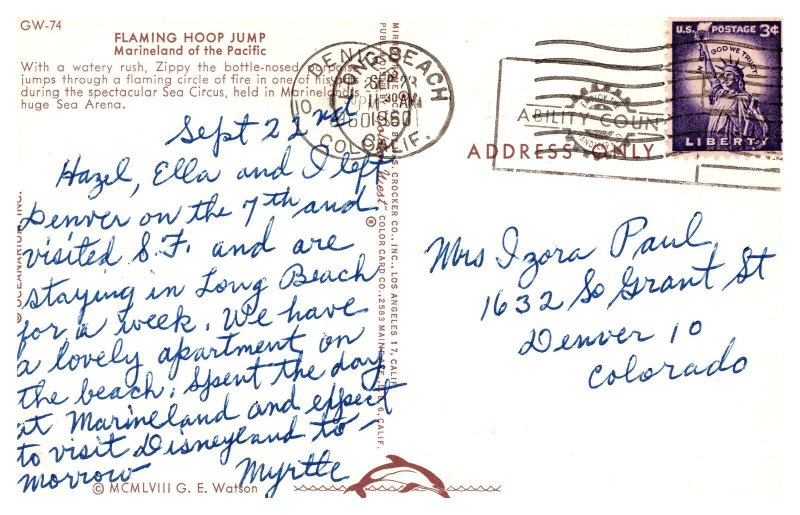 GW-74
FLAMING HOOP JUMP
Marineland of the Pacific
With a watery rush, Zippy the bottle-nosed porpoise
jumps through a flaming circle of fire in one of his acts
during the spectacular Sea Circus, held in Marineland's
huge Sea Arena.
Sept 22nd
Hazel, Ella and I left
Denver on the 7th and
visited S.F. and are
staying in Long Beach
for a week. We have
a lovely apartment on
the beach. Spent the day
at Marineland and expect
to visit Disneyland to-
morrow
Myrtle
© MCMLVIII G. E. Watson
© OCEANARIUM, INC.
CROCKER CO., INC., LOS ANGELES 17, CALIF.
COLOR CARD CO., 2583
LONG BEACH
SEP 23
AM
1960
CALIF.
U.S. POSTAGE 3¢
IN GOD WE TRUST
LIBERTY
ABILITY COUN
ADDRESS ONLY
Mrs Izora Paul
1632 So Grant St
Denver 10
Colorado